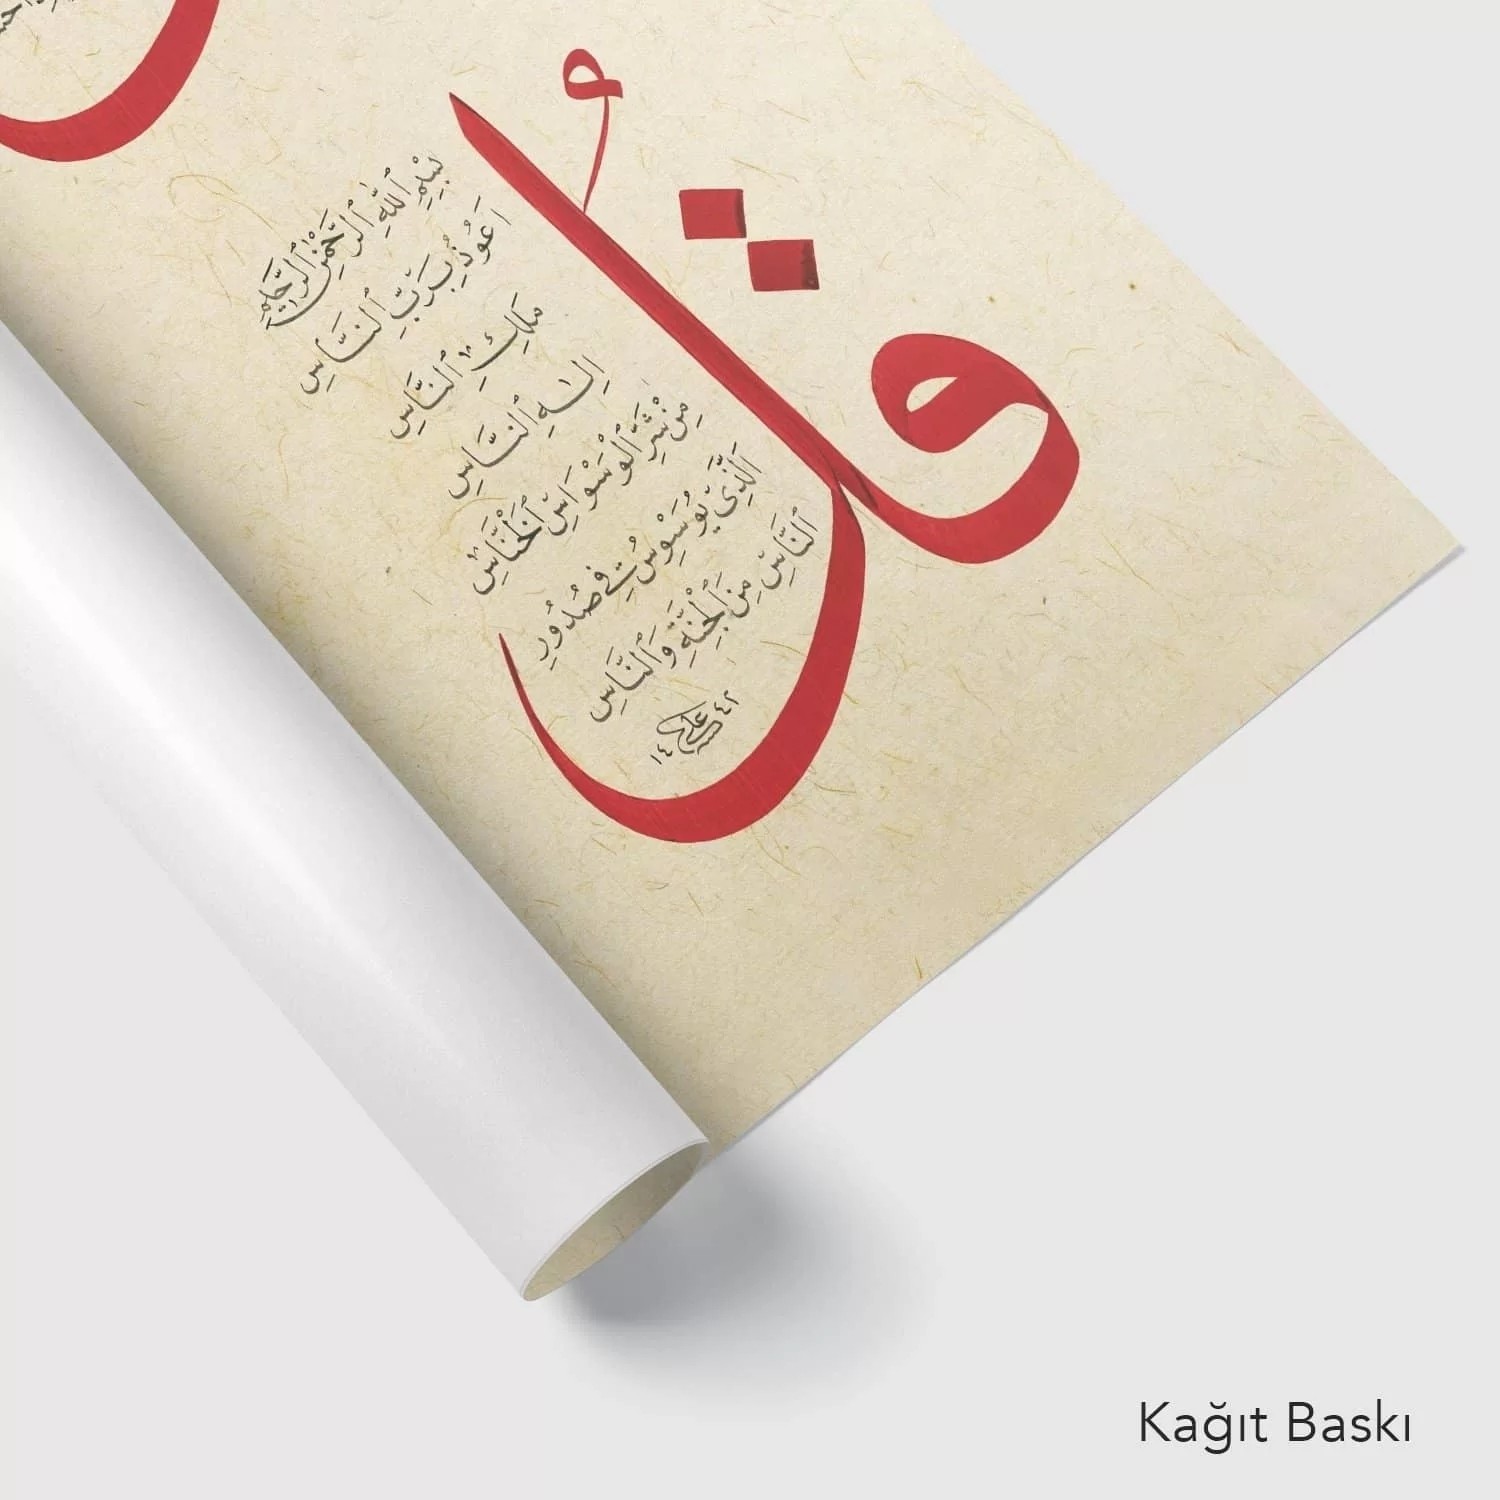 قُل
بِسْمِ ٱللهِ ٱلرَّحْمٰنِ ٱلرَّحِيمِ
اَعُوذُ بِرَبِّ ٱلنَّاسِ
مَلِكِ ٱلنَّاسِ
اِلٰهِ ٱلنَّاسِ
مِنْ شَرِّ ٱلْوَسْوَاسِ ٱلْخَنَّاسِ
اَلَّذِى يُوَسْوِسُ فِى صُدُورِ
ٱلنَّاسِ مِنَ ٱلْجِنَّةِ وَٱلنَّاسِ
علي ١٤٤٢
Kağıt Baskı